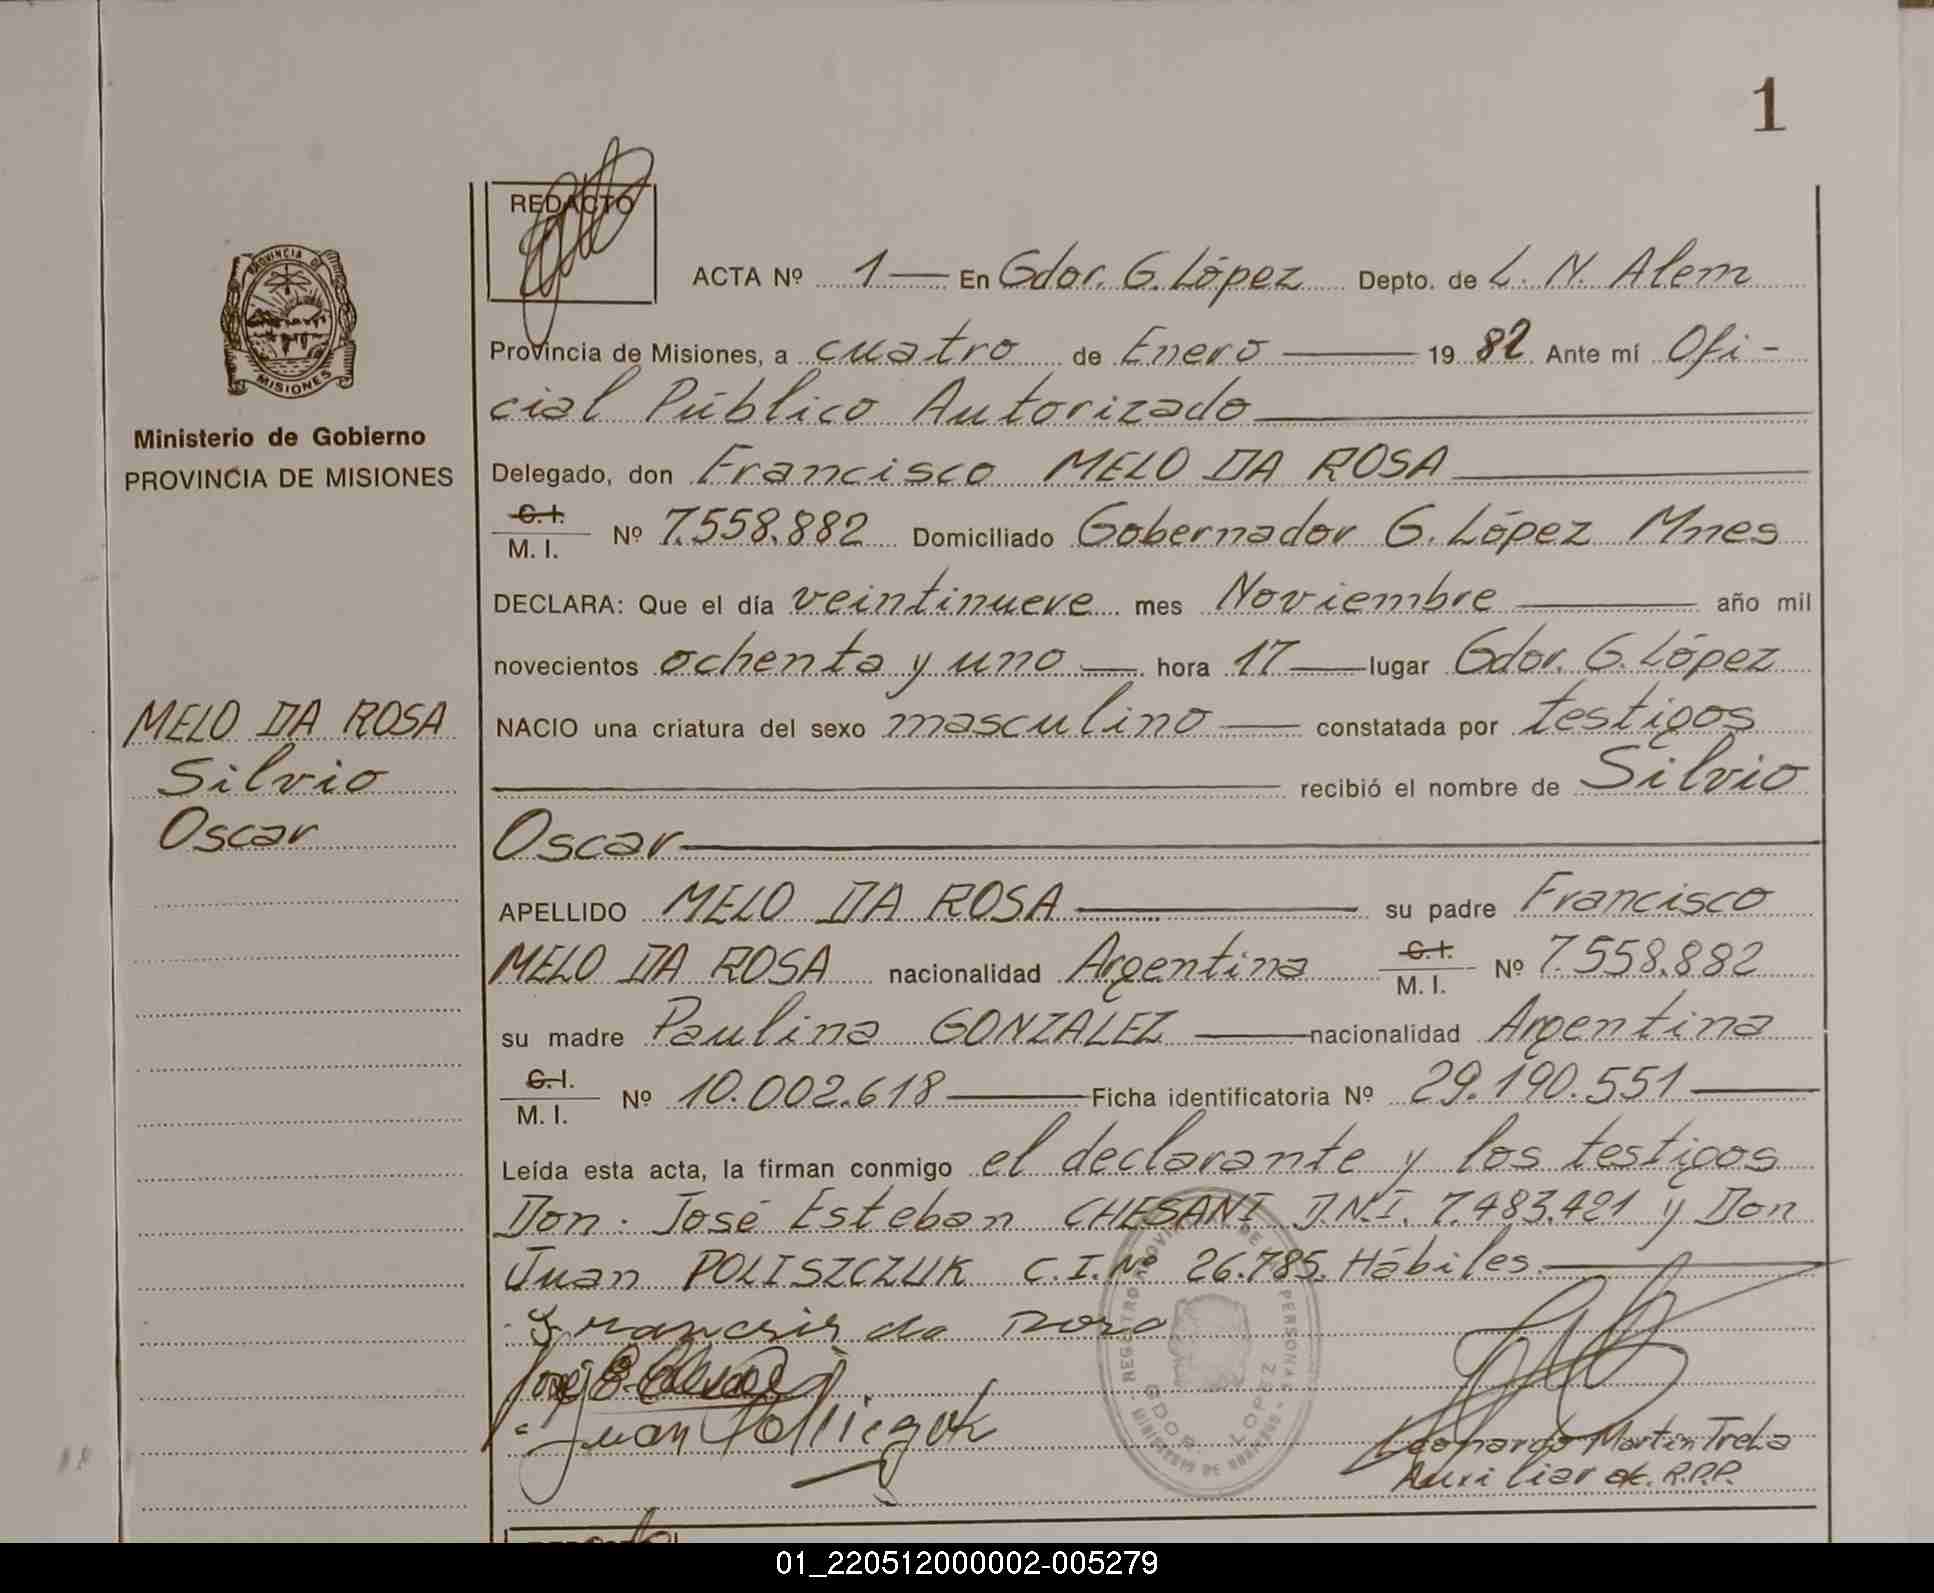 1
REDACTO
ACTA Nº 1 En Gdor. G. López Depto. de L. N. Alem
Provincia de Misiones, a cuatro de Enero 19 82 Ante mí Ofi-
cial Público Autorizado
Delegado, don Francisco MELO DA ROSA
C. I. / M. I. Nº 7.558.882 Domiciliado Gobernador G. López Mnes
DECLARA: Que el día veintinueve mes Noviembre año mil
novecientos ochenta y uno hora 17 lugar Gdor. G. López
NACIO una criatura del sexo masculino constatada por testigos
recibió el nombre de Silvio
Oscar
APELLIDO MELO DA ROSA su padre Francisco
MELO DA ROSA nacionalidad Argentina C. I. / M. I. Nº 7.558.882
su madre Paulina GONZALEZ nacionalidad Argentina
C. I. / M. I. Nº 10.002.618 Ficha identificatoria Nº 29.190.551
Leída esta acta, la firman conmigo el declarante y los testigos
Don. José Esteban CHESANI D.N.I. 7.483.421 y Don
Juan POLISZCZUK C.I. Nº 26.785. Hábiles.
da
José E.
Juan
Leonardo Martín Trela
Auxiliar R.P.P.
PROVINCIA DE
MISIONES
Ministerio de Gobierno
PROVINCIA DE MISIONES
MELO DA ROSA
Silvio
Oscar
REGISTRO PROVINCIAL DE PERSONAS
GDOR. LOPEZ
MINISTERIO DE GOBIERNO
01_220512000002-005279